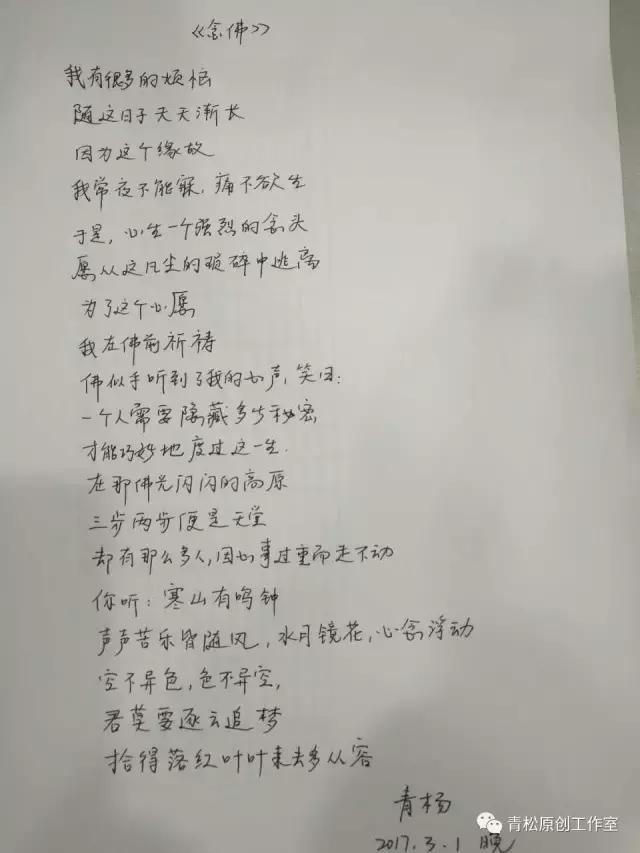 《念佛》
我有很多的烦恼
随这日子天天渐长
因为这个缘故
我常夜不能寐，痛不欲生
于是，心生一个强烈的念头
愿从这凡尘的琐碎中逃离
为了这个心愿
我在佛前祈祷
佛似乎听到了我的心声，笑曰：
一个人需要隐藏多少秘密
才能巧妙地度过这一生.
在那佛光闪闪的高原
三步两步便是天堂
却有那么多人，因心事过重而走不动
你听：寒山有鸣钟
声声苦乐皆随风，水月镜花，心念浮动
空不异色，色不异空，
君莫要逐云追梦
拾得落红叶叶来去多从容
青杨
2017.3.1 晚
青松原创工作室